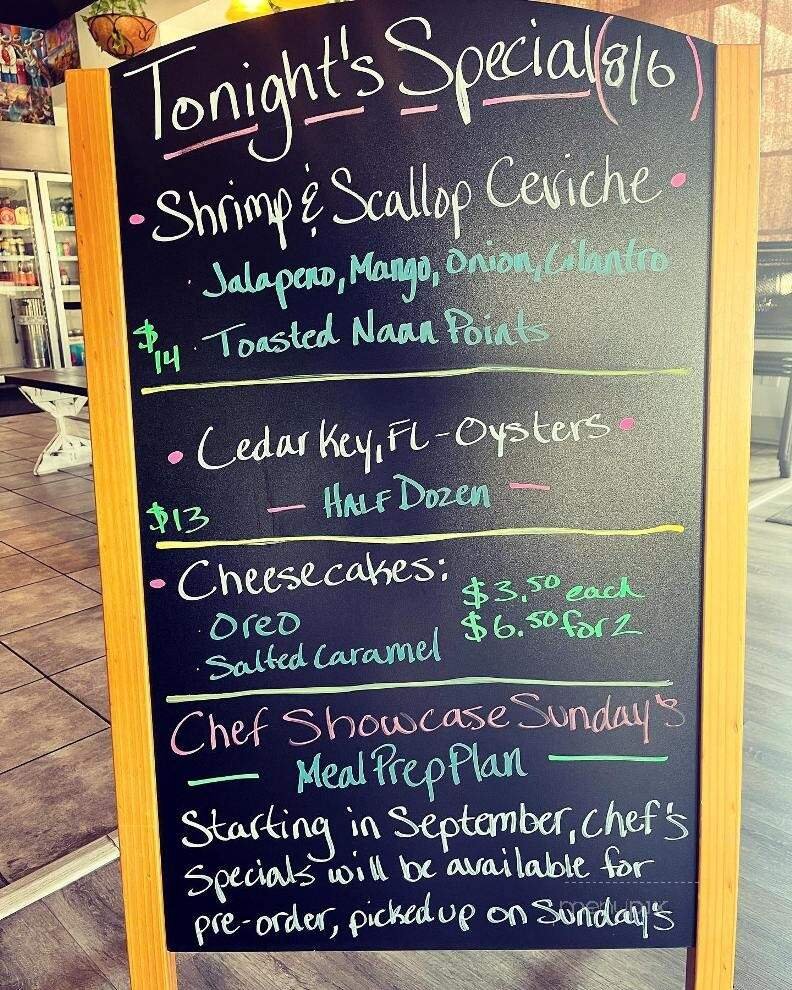 Tonight's Special (8/6)
• Shrimp & Scallop Ceviche •
· Jalapeno, Mango, Onion, Cilantro
$14 · Toasted Naan Points
• Cedar Key, FL - Oysters •
$13 — HALF Dozen —
• Cheesecakes:
$3.50 each
· Oreo
$6.50 for 2
· Salted Caramel
Chef Showcase Sunday's
— Meal Prep Plan —
Starting in September, Chef's
Specials will be available for
pre-order, picked up on Sunday's
menupix